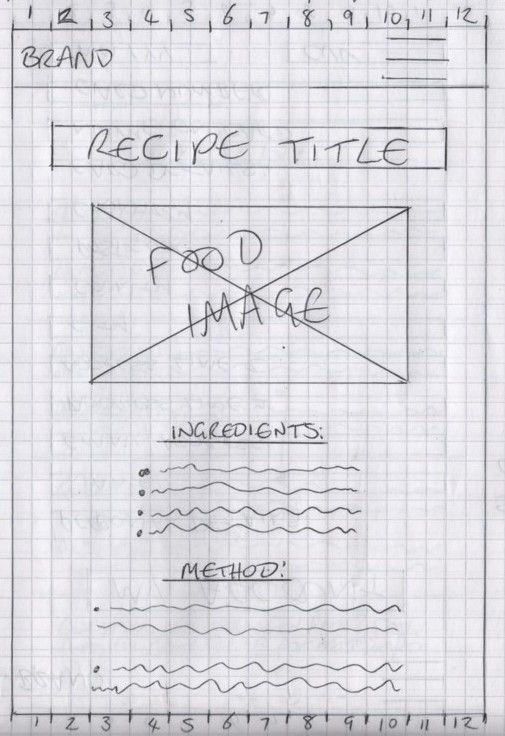 1 2 3 4 5 6 7 8 9 10 11 12
BRAND
RECIPE TITLE
FOOD
IMAGE
INGREDIENTS:
METHOD:
1 2 3 4 5 6 7 8 9 10 11 12